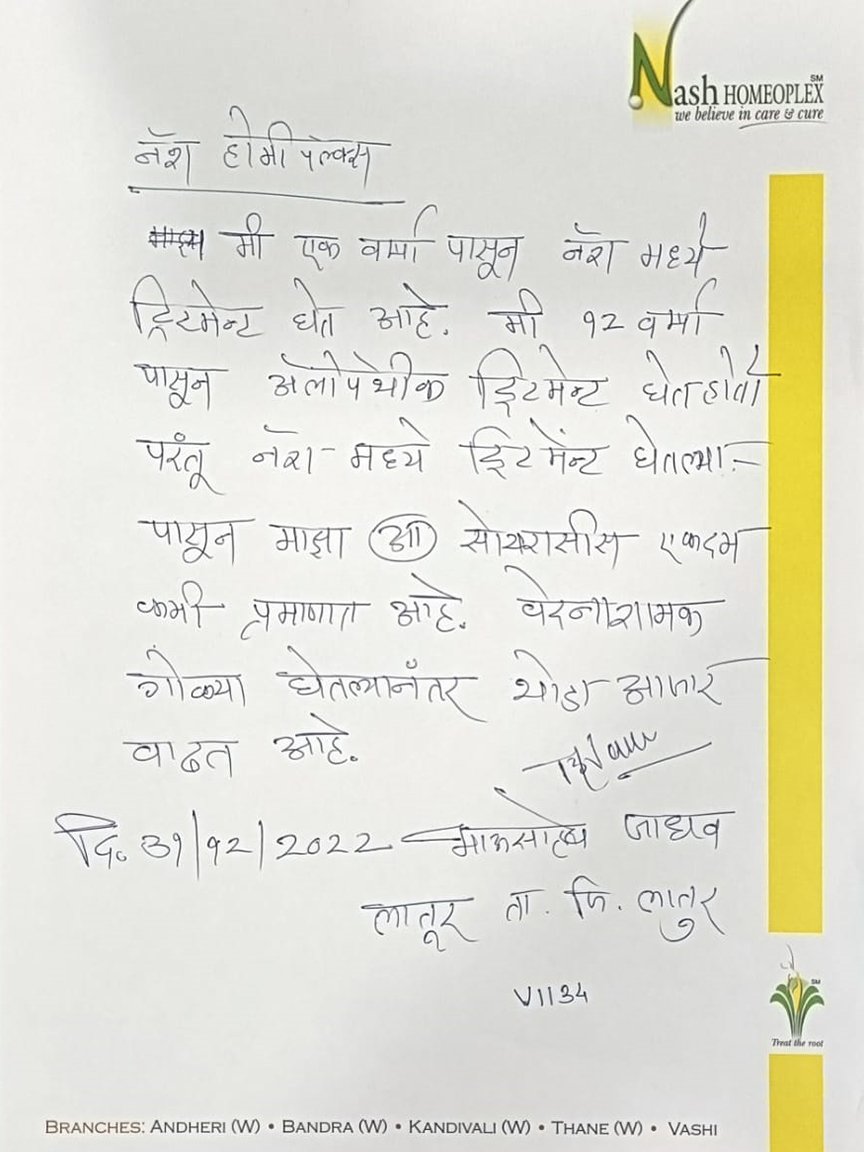 Nash HOMEOPLEX SM
we believe in care & cure
नॅश होमीपल्क्स
मी एक वर्षा पासून नॅश मध्ये
ट्रिटमेन्ट घेत आहे. मी १२ वर्षा
पासून अ‍ॅलोपॅथीक ट्रिटमेन्ट घेत होतो
परंतू नॅश मध्ये ट्रिटमेंन्ट घेतल्या-
पासून माझा आ सोयरासीस एकदम
कमी प्रमाणात आहे. वेदनाशामक
गोळ्या घेतल्यानंतर थोडा आजार
वाढत आहे.
दि. ३१/१२/२०२२ भाऊसाहेब जाधव
लातूर ता. जि. लातुर
V1134
SM
Treat the root
BRANCHES: ANDHERI (W) • BANDRA (W) • KANDIVALI (W) • THANE (W) • VASHI